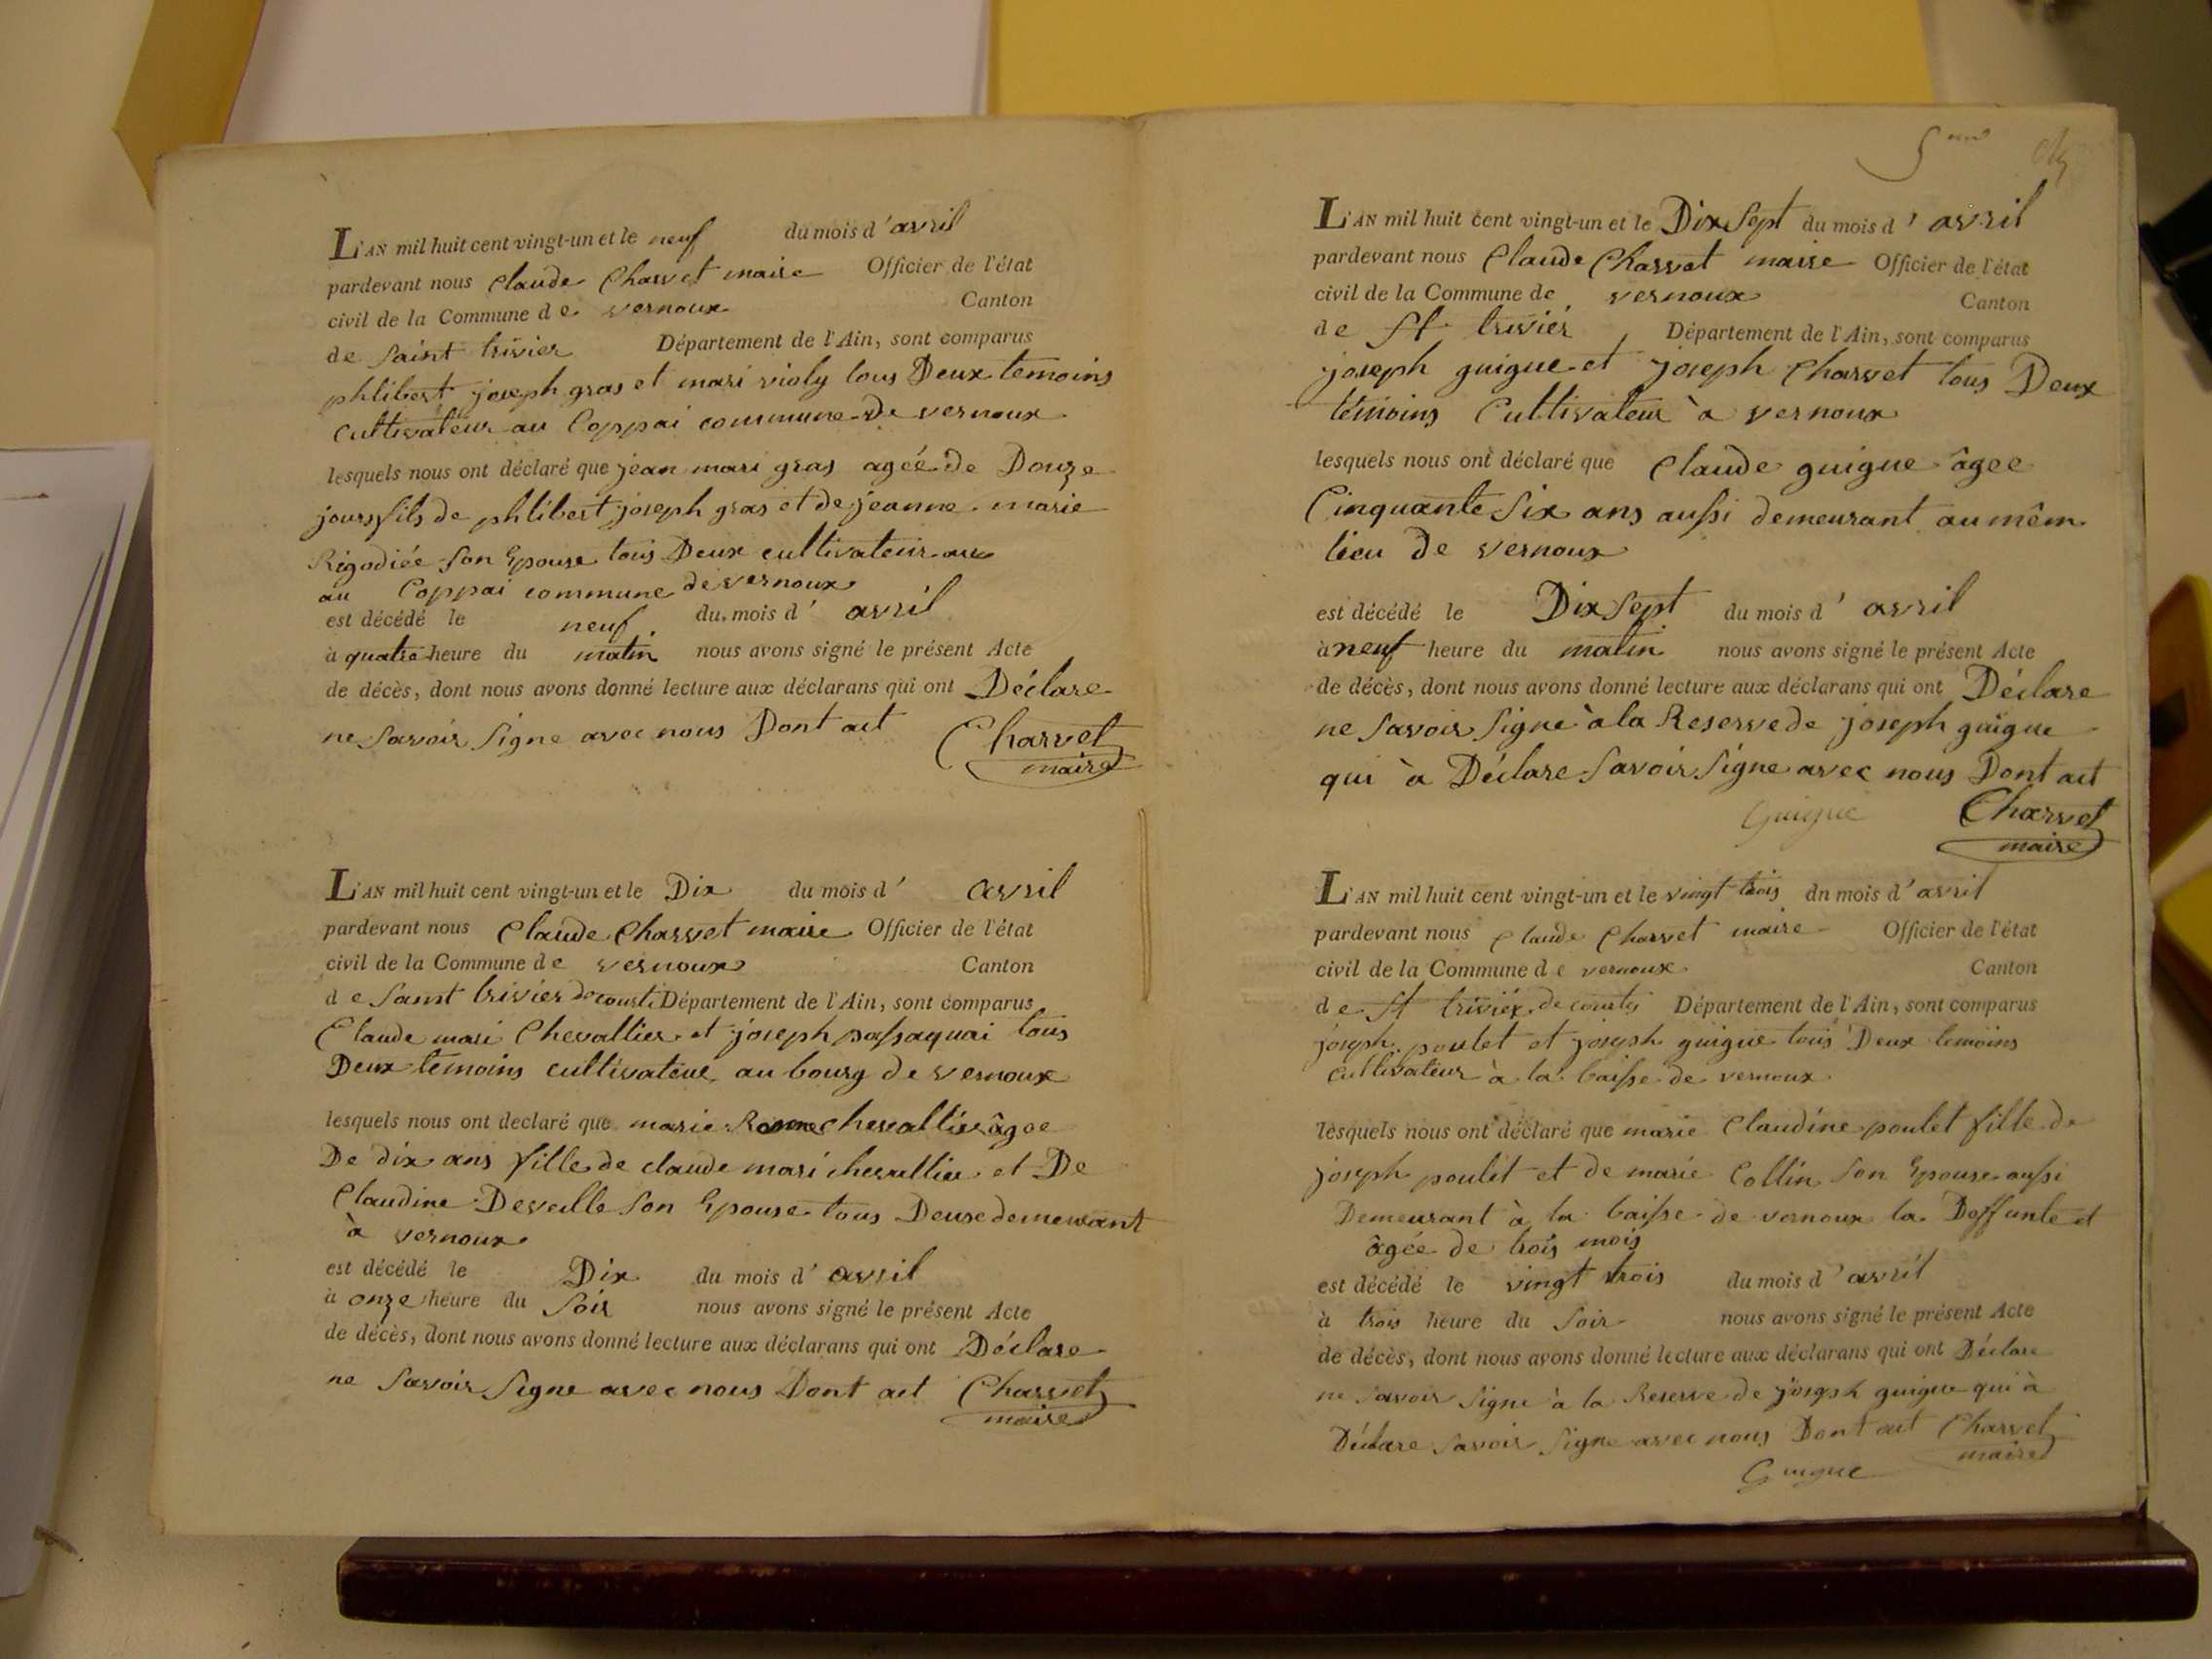 L'AN mil huit cent vingt-un et le neuf du mois d'avril
pardevant nous Claude Charvet maire Officier de l'état
civil de la Commune de vernoux Canton
de Saint trivier Département de l'Ain, sont comparus
phlibert joseph gras et mari violy tous Deux temoins
Cultivateur au Coppai commune De vernoux
lesquels nous ont déclaré que jean mari gras agée de Douze
jours fils de phlibert joseph gras et de jeanne marie
Rigodiée Son Epouse tous Deux cultivateur au
au Coppai commune de vernoux
est décédé le neuf du mois d' avril
à quatre heure du matin nous avons signé le présent Acte
de décès, dont nous avons donné lecture aux déclarans qui ont Déclare
ne Savoir Signe avec nous Dont act Charvet
maire
L'AN mil huit cent vingt-un et le Dix du mois d' avril
pardevant nous Claude Charvet maire Officier de l'état
civil de la Commune de vernoux Canton
de Saint trivier de courti Département de l'Ain, sont comparus
Claude mari Chevallier et joseph passaquai tous
Deux temoins cultivateur au bourg de vernoux
lesquels nous ont declaré que marie chevallier âgee
De dix ans fille de claude mari chevallier et De
Claudine Deveille Son Epouse tous Deux demeurant
à vernoux
est décédé le Dix du mois d' avril
à onze heure du Soir nous avons signé le présent Acte
de décès, dont nous avons donné lecture aux déclarans qui ont Déclare
ne Savoir Signe avec nous Dont act Charvet
maire
5
L'AN mil huit cent vingt-un et le Dix Sept du mois d' avril
pardevant nous Claude Charvet maire Officier de l'état
civil de la Commune de vernoux Canton
de St trivier Département de l'Ain, sont comparus
joseph guigue et joseph Charvet tous Deux
témoins Cultivateur à vernoux
lesquels nous ont déclaré que Claude guigue âgee
Cinquante Six ans aussi demeurant au mêm
lieu de vernoux
est décédé le Dix Sept du mois d' avril
à neuf heure du matin nous avons signé le présent Acte
de décès, dont nous avons donné lecture aux déclarans qui ont Déclare
ne Savoir Signe à la Reserve de joseph guigue
qui à Déclare Savoir Signe avec nous Dont act
Guigue Charvet
maire
L'AN mil huit cent vingt-un et le vingt trois dn mois d' avril
pardevant nous Claude Charvet maire Officier de l'état
civil de la Commune de vernoux Canton
de St trivier de courty Département de l'Ain, sont comparus
joseph poulet et joseph guigue tous Deux temoins
Cultivateur à la baisse de vernoux
lesquels nous ont déclaré que marie Claudine poulet fille de
joseph poulet et de marie Collin Son Epouse aussi
Demeurant à la baisse de vernoux la Deffunte et
âgée de trois mois
est décédé le vingt trois du mois d' avril
à trois heure du Soir nous avons signé le présent Acte
de décès, dont nous avons donné lecture aux déclarans qui ont Déclare
ne Savoir Signe à la Reserve de joseph guigue qui à
Déclare Savoir Signe avec nous Dont act Charvet
Guigue maire